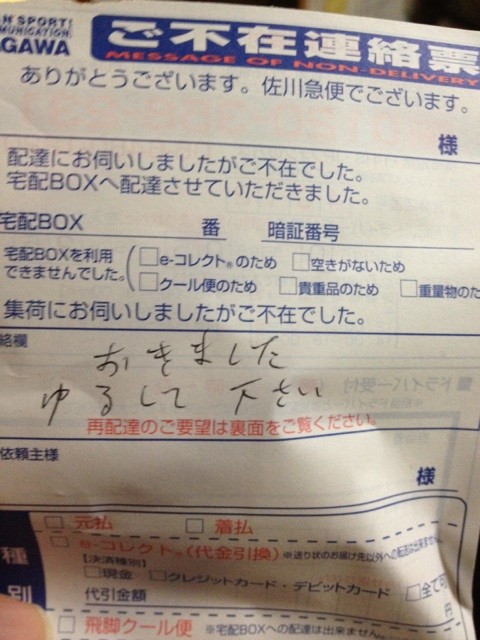 N SPORT!
MUNICATION
GAWA
ご不在連絡票
MESSAGE OF NON-DELIVERY
ありがとうございます。佐川急便でございます。
様
配達にお伺いしましたがご不在でした。
宅配BOXへ配達させていただきました。
宅配BOX 番 暗証番号
宅配BOXを利用できませんでした。
□e-コレクト®のため □空きがないため
□クール便のため □貴重品のため □重量物のた
集荷にお伺いしましたがご不在でした。
絡欄
おきました
ゆるして下さい
再配達のご要望は裏面をご覧ください。
依頼主様
様
種別
□ 元払 □ 着払
□ e-コレクト®(代金引換) ※送り状のお届け先以外への転送は出来ません
【決済種別】
□現金 □クレジットカード・デビットカード □全て可
代引金額 円
□ 飛脚クール便 ※宅配BOXへの配達は出来ません